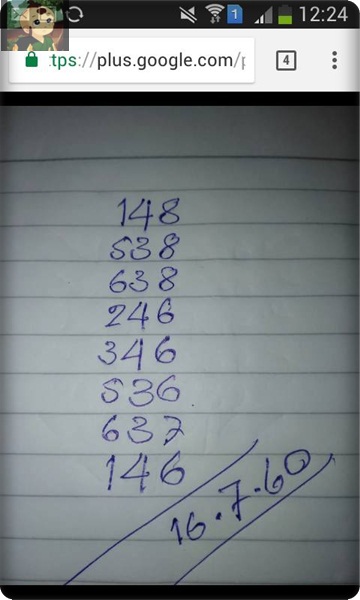 12:24
1
tps://plus.google.com/p
4
148
538
638
246
346
536
637
146
16.7.60